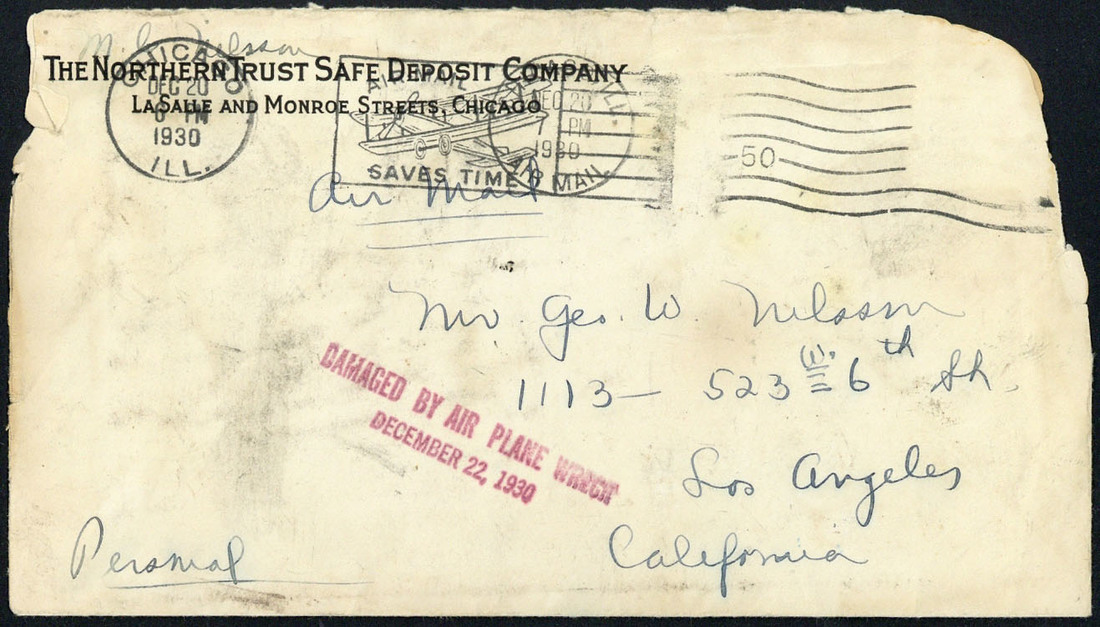 M. L. Nilsson
THE NORTHERN TRUST SAFE DEPOSIT COMPANY
LASALLE AND MONROE STREETS, CHICAGO
CHICAGO
DEC 20
6 PM
1930
ILL.
AIR MAIL
SAVES TIME
ILL.
DEC 20
7 PM
1930
AIR MAIL
50
Air Mail
Mr. Geo. W. Nilsson
1113 - 523 W. 6th St.
Los Angeles
California
DAMAGED BY AIR PLANE WRECK
DECEMBER 22, 1930
Personal